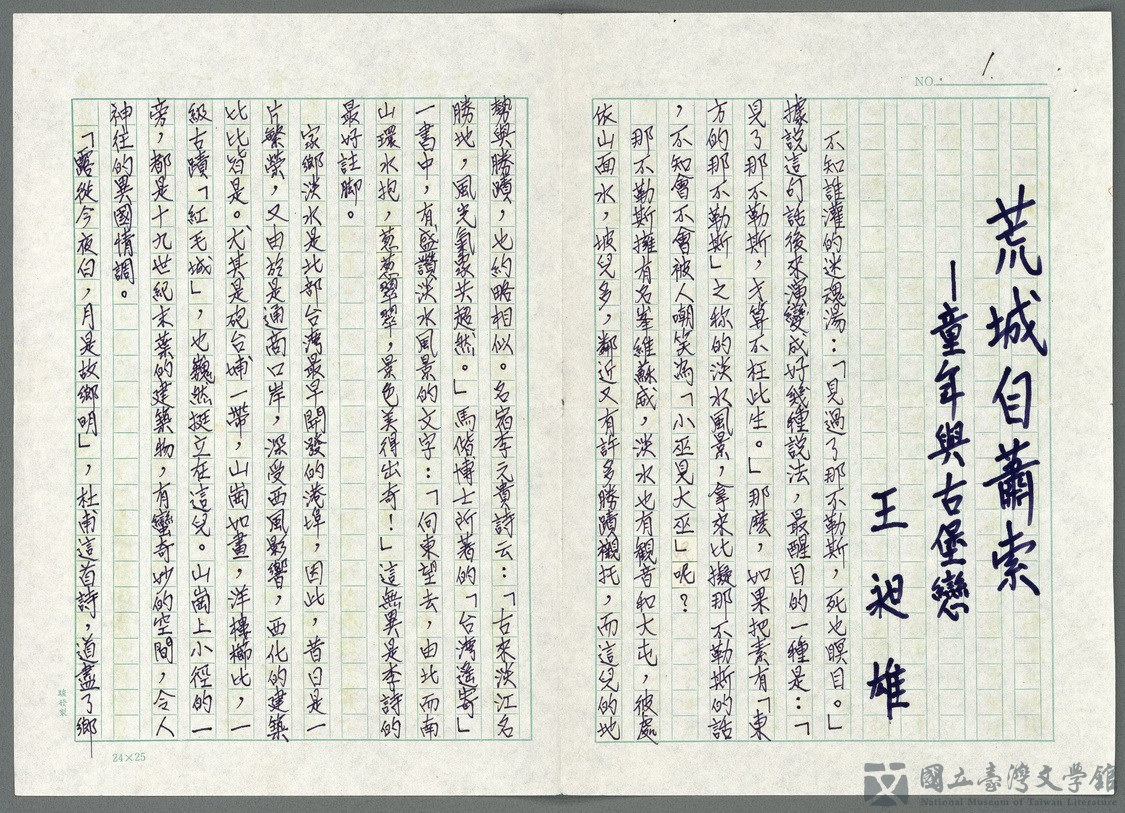 NO. 1
荒城自蕭索
—童年與古堡戀
王昶雄
不知誰灌的迷魂湯：「見過了那不勒斯，死也瞑目。」
據說這句話後來演變成好幾種說法，最醒目的一種是：「
見了那不勒斯，才算不枉此生。」那麼，如果把素有「東
方的那不勒斯」之称的淡水風景，拿來比擬那不勒斯的話
，不知會不會被人嘲笑為「小巫見大巫」呢？
那不勒斯擁有名峯維蘇威，淡水也有觀音和大屯，彼處
依山面水，坡兒多，鄰近又有許多勝蹟襯托，而這兒的地
勢與勝蹟，也約略相似。名宿李元貴詩云：「古來淡江名
勝地，風光氣象共超然。」馬偕博士所著的「台灣遙寄」
一書中，有盛讚淡水風景的文字：「向東望去，由北而南
山環水抱，蔥蔥翠翠，景色美得出奇！」這無異是李詩的
最好註脚。
家鄉淡水是北部台灣最早開發的港埠，因此，昔日是一
片繁榮，又由於是通商口岸，深受西風影響，西化的建築
比比皆是。尤其是砲台埔一帶，山崗如畫，洋樓櫛比，一
級古蹟「紅毛城」，也巍然挺立在這兒。山崗上小徑的一
旁，都是十九世紀末葉的建築物，有蠻奇妙的空間，令人
神往的異國情調。
「露從今夜白，月是故鄉明」，杜甫這首詩，道盡了鄉
24×25
國立臺灣文學館
National Museum of Taiwan Literature